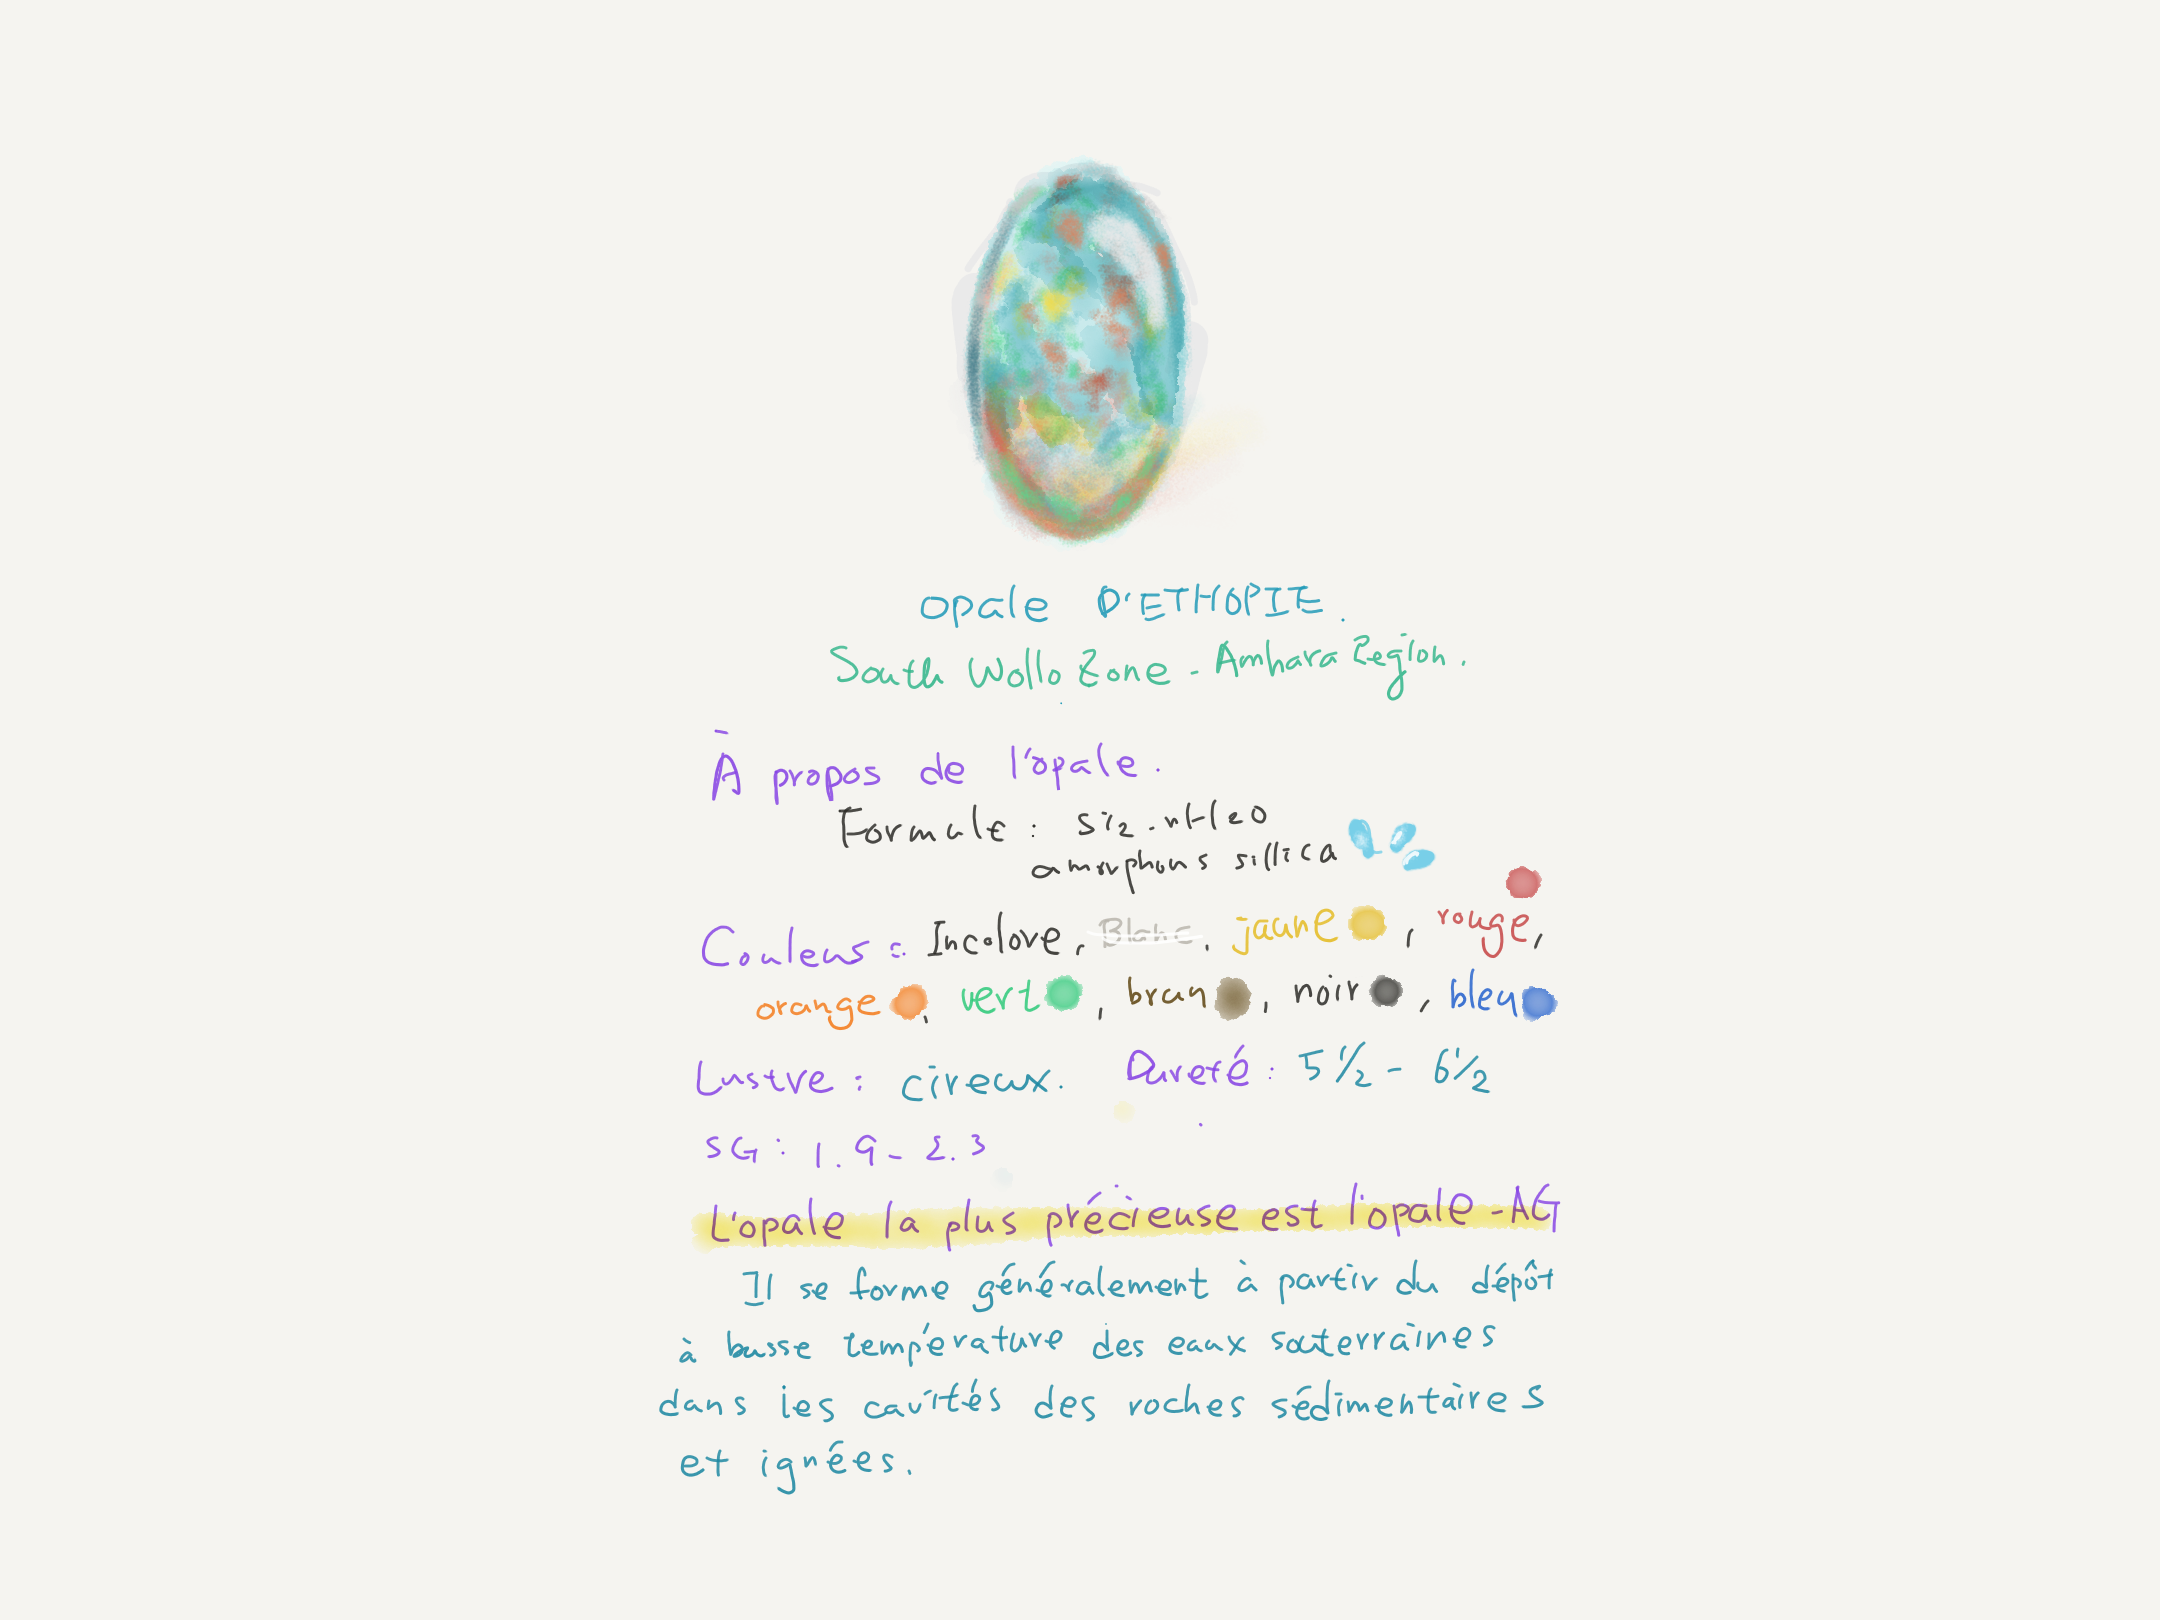 opale D'ETHOPIE.
South Wollo Zone - Amhara Region.
À propos de l'opale.
Formule : Si2.nH2O
amorphous sillica
Couleus : Incolore, Blanc, jaune, rouge,
orange, vert, brun, noir, bleu
Lustre : cireux. Dureté : 5 1/2 - 6 1/2
SG : 1.9 - 2.3
L'opale la plus précieuse est l'opale-AG
Il se forme généralement à partir du dépôt
à basse température des eaux souterraines
dans les cavités des roches sédimentaires
et ignées.